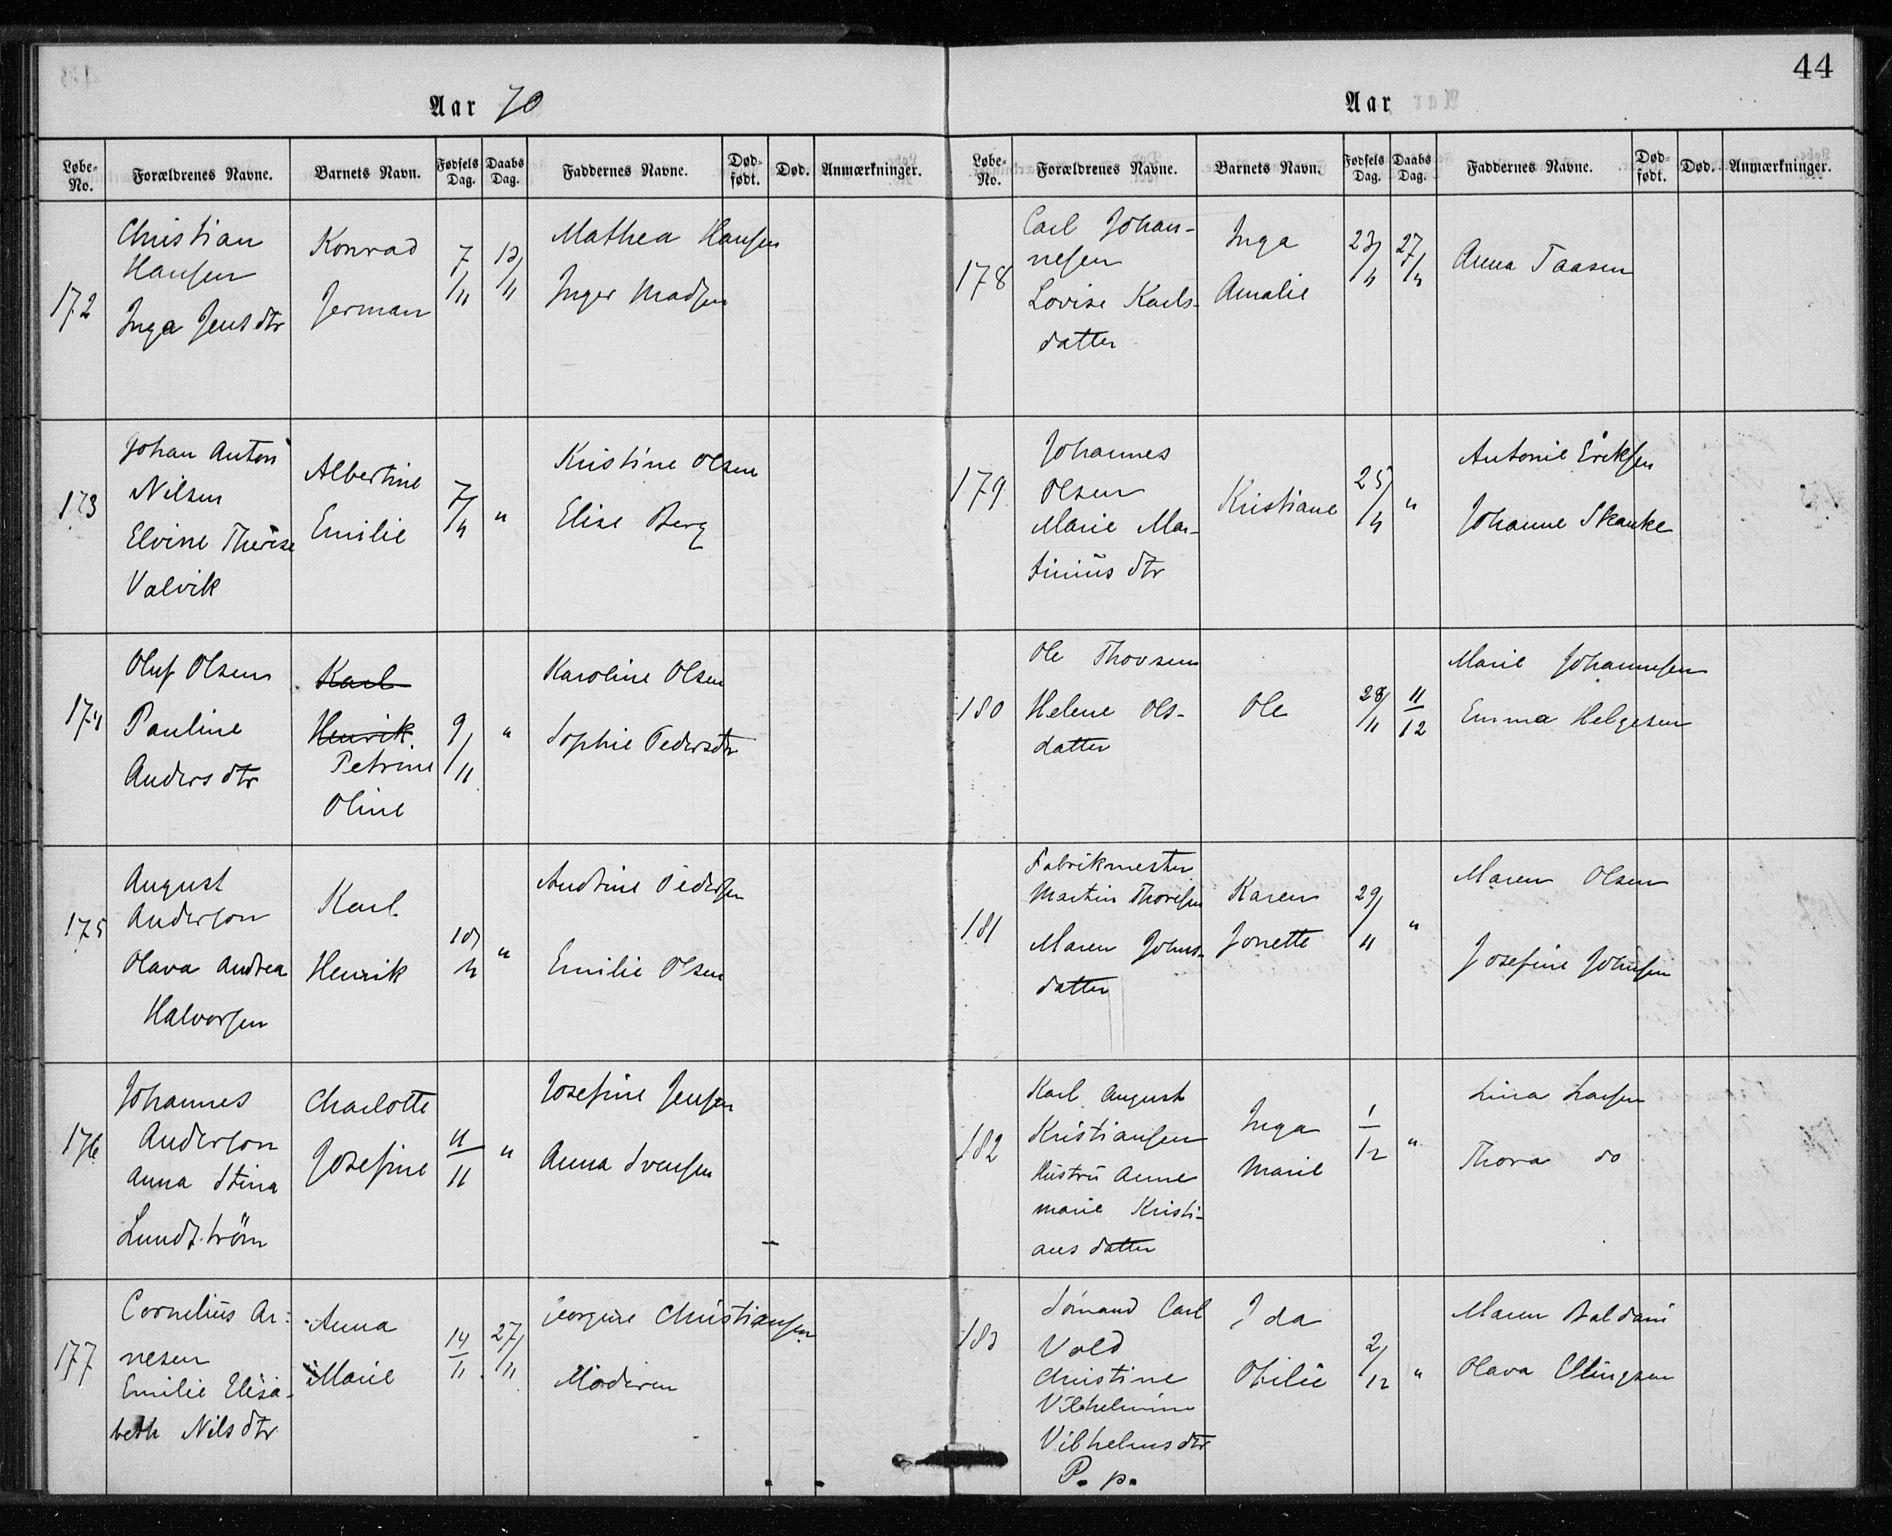 44
Aar 70
Løbe-No. Forældrenes Navne. Barnets Navn. Fødsels Dag. Daabs Dag. Faddernes Navne. Død-født. Død. Anmærkninger.
172
Christian
Hansen
Inga Jens dtr
Konrad
Jerman
7/11
13/11
Mathea Hansen
Inger Madsen
173
Johan Anton
Nilsen
Elvine Therese
Valvik
Albertine
Emilie
7/11
"
Kristine Olsen
Elise Berg
174
Oluf Olsen
Pauline
Anders dtr
Karl
Henrik
Petrine
Oline
9/11
"
Karoline Olsen
Sophie Pedersdtr
175
August
Anderson
Olava Andrea
Halvorsen
Karl
Henrik
10/11
"
Andrine Pedersen
Emilie Olsen
176
Johannes
Anderson
Anna Stina
Lundström
Charlotte
Josefine
11/11
"
Josefine Jensen
Anna Svensen
177
Cornelius Ar-
nesen
Emilie Elisa-
beth Nils dtr
Anna
Marie
14/11
27/11
Georgine Christiansen
Moderen
Aar
Løbe-No. Forældrenes Navne. Barnets Navn. Fødsels Dag. Daabs Dag. Faddernes Navne. Død-født. Død. Anmærkninger.
178
Carl Johan-
nesen
Lovise Karls-
datter
Inga
Amalie
23/11
27/11
Anna Taasen
179
Johannes
Olsen
Marie Mar-
tinius dtr
Kristiane
25/11
"
Antonie Eriksen
Johanne Skanke
180
Ole Thovsen
Helene Ols-
datter
Ole
28/11
11/12
Marie Johannesen
Emma Helgesen
181
Fabrikmester
Martin Thoresen
Maren Johns-
datter
Karen
Jonette
29/11
"
Maren Olsen
Josefine Johnsen
182
Karl August
Kristiansen
Hustru Anne
Marie Kristi-
ans datter
Inga
Marie
1/12
"
Lina Larsen
Thora do
183
Sömand Carl
Vold
Christine
Vilhelmine
Vilhelms dtr
P. p.
Ida
Otilie
2/12
"
Maren
Olava Ellingsen